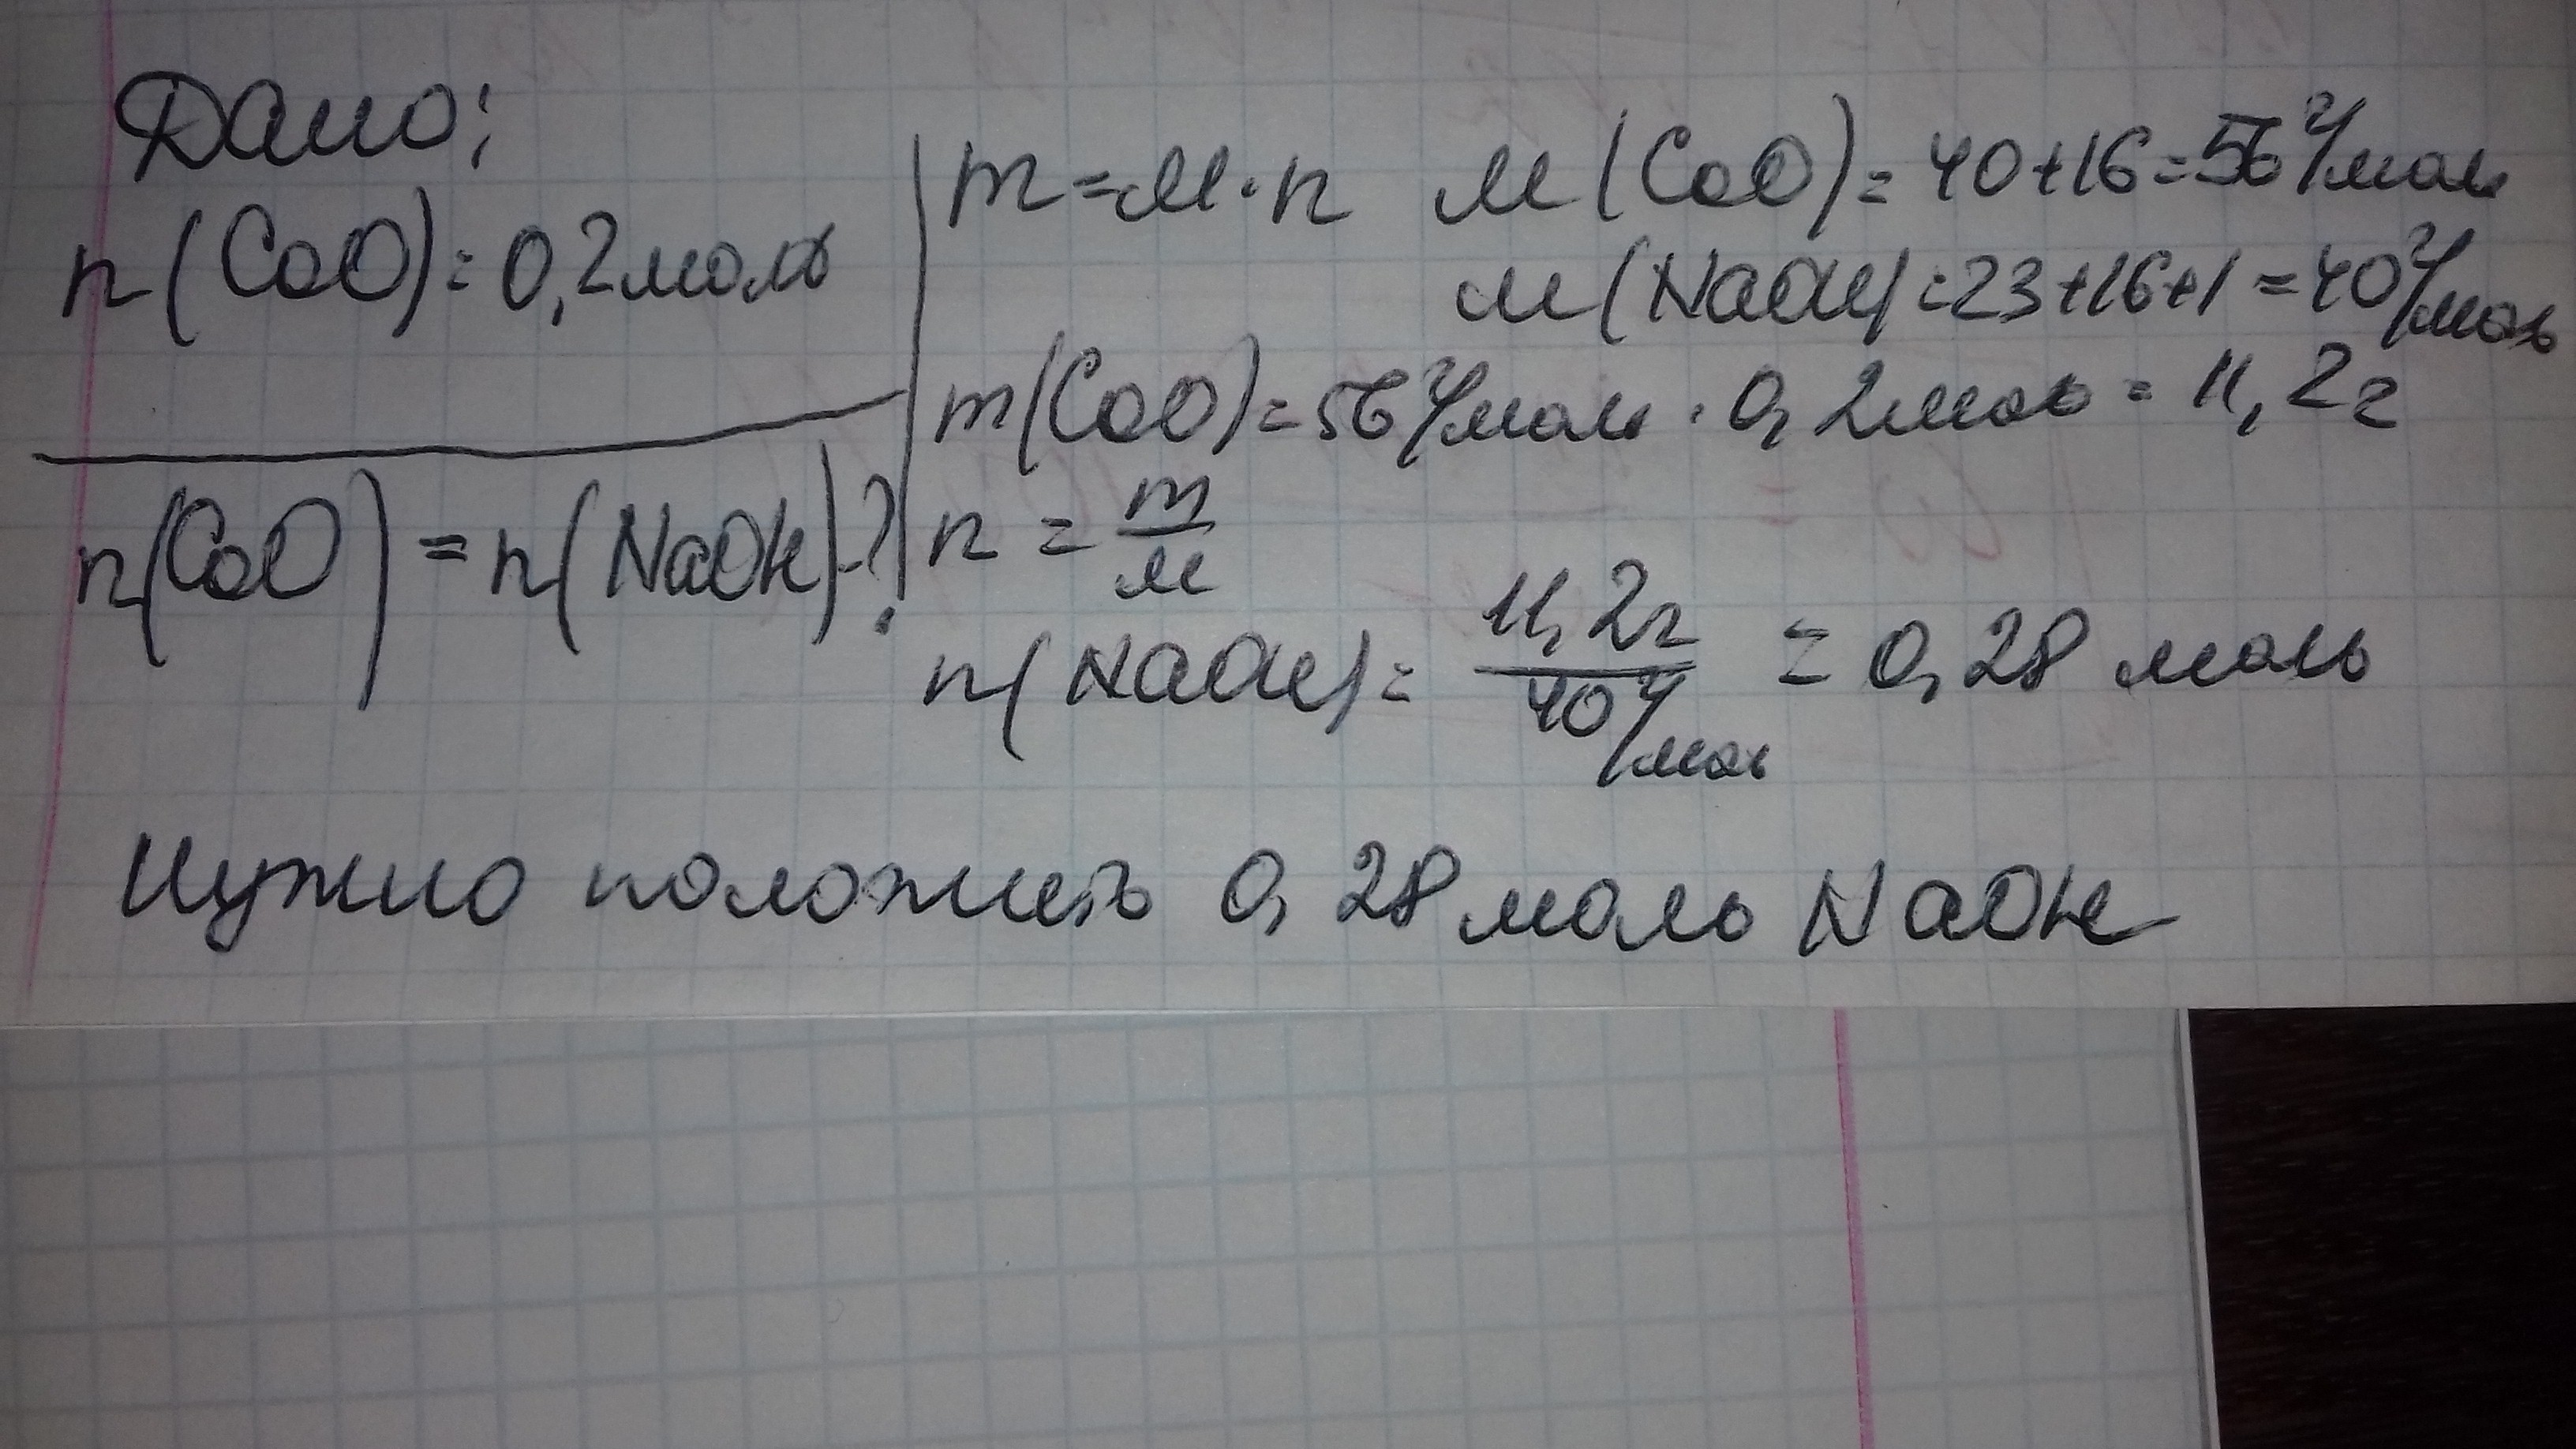 Дано:
n(CaO)=0,2моль
n(CaO)=n(NaOH)-?
m=M·n M(CaO)=40+16=56г/моль
M(NaOH)=23+16+1=40г/моль
m(CaO)=56г/моль·0,2моль=11,2г
n=m/M
n(NaOH)=11,2г/40г/моль=0,28 моль
Нужно положить 0,28 моль NaOH